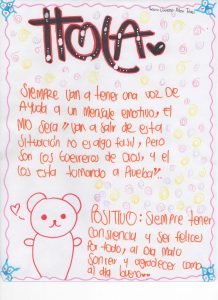 HOLA
SIEMPRE VAN A TENER UNA VOZ DE
AYUDA A UN MENSAJE EMOTIVO, EL
MIO SERA "VAN A SALIR DE ESTA
SITUACIÓN NO ES ALGO FACIL, PERO
SON LOS GUERREROS DE DIOS Y EL
LOS ESTA TOMANDO A PRUEBA"..
POSITIVO: SIEMPRE TENER
CONSIENCIA Y SER FELICES
POR TODO, AL DIA MALO
SONREIR Y AGRADECER COMO
AL DIA BUENO